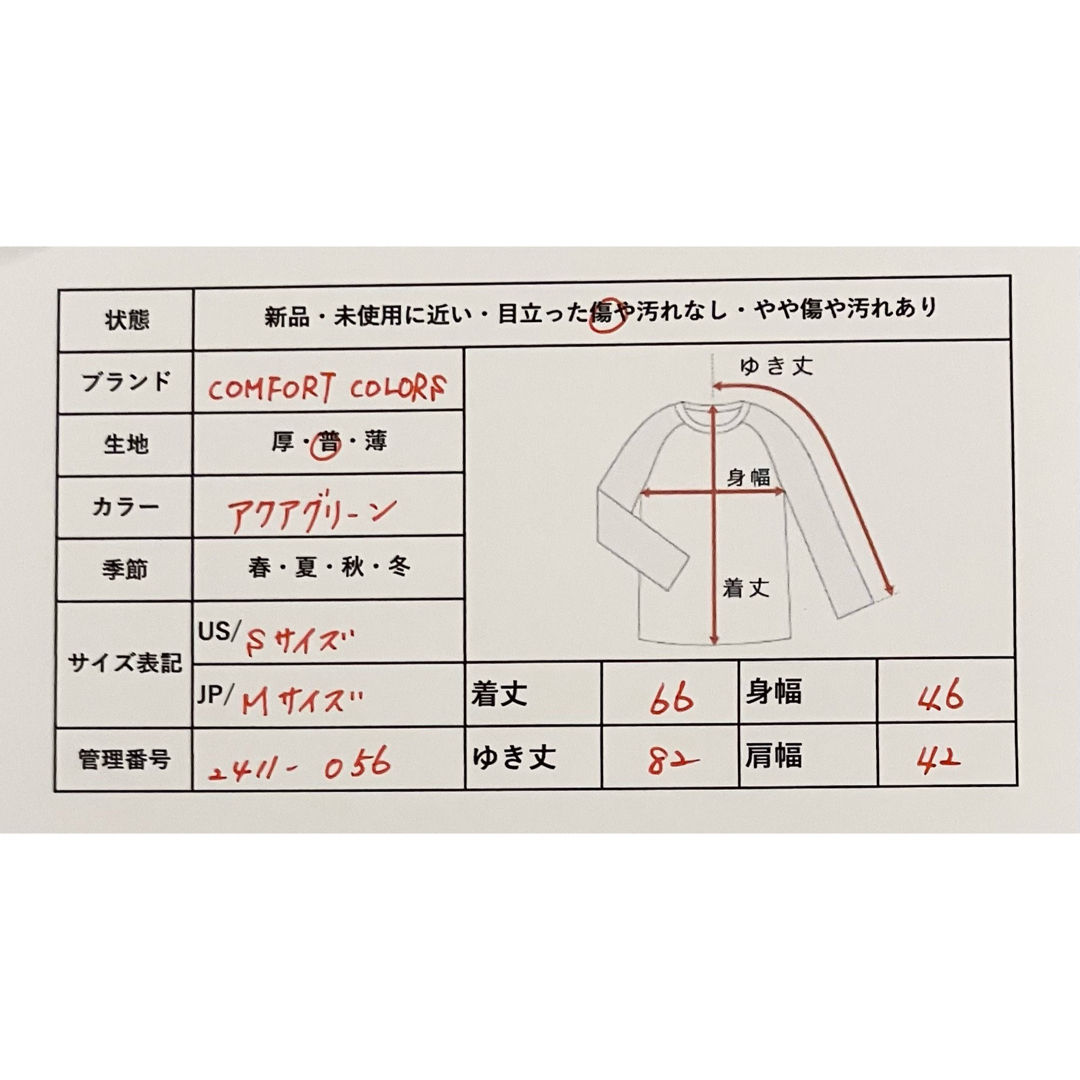 状態 新品・未使用に近い・目立った傷や汚れなし・やや傷や汚れあり
ブランド COMFORT COLORS
生地 厚・普・薄
カラー アクアグリーン
季節 春・夏・秋・冬
サイズ表記 US/ Sサイズ
JP/ Mサイズ
管理番号 2411-056
ゆき丈
身幅
着丈
着丈 66 身幅 46
ゆき丈 82 肩幅 42